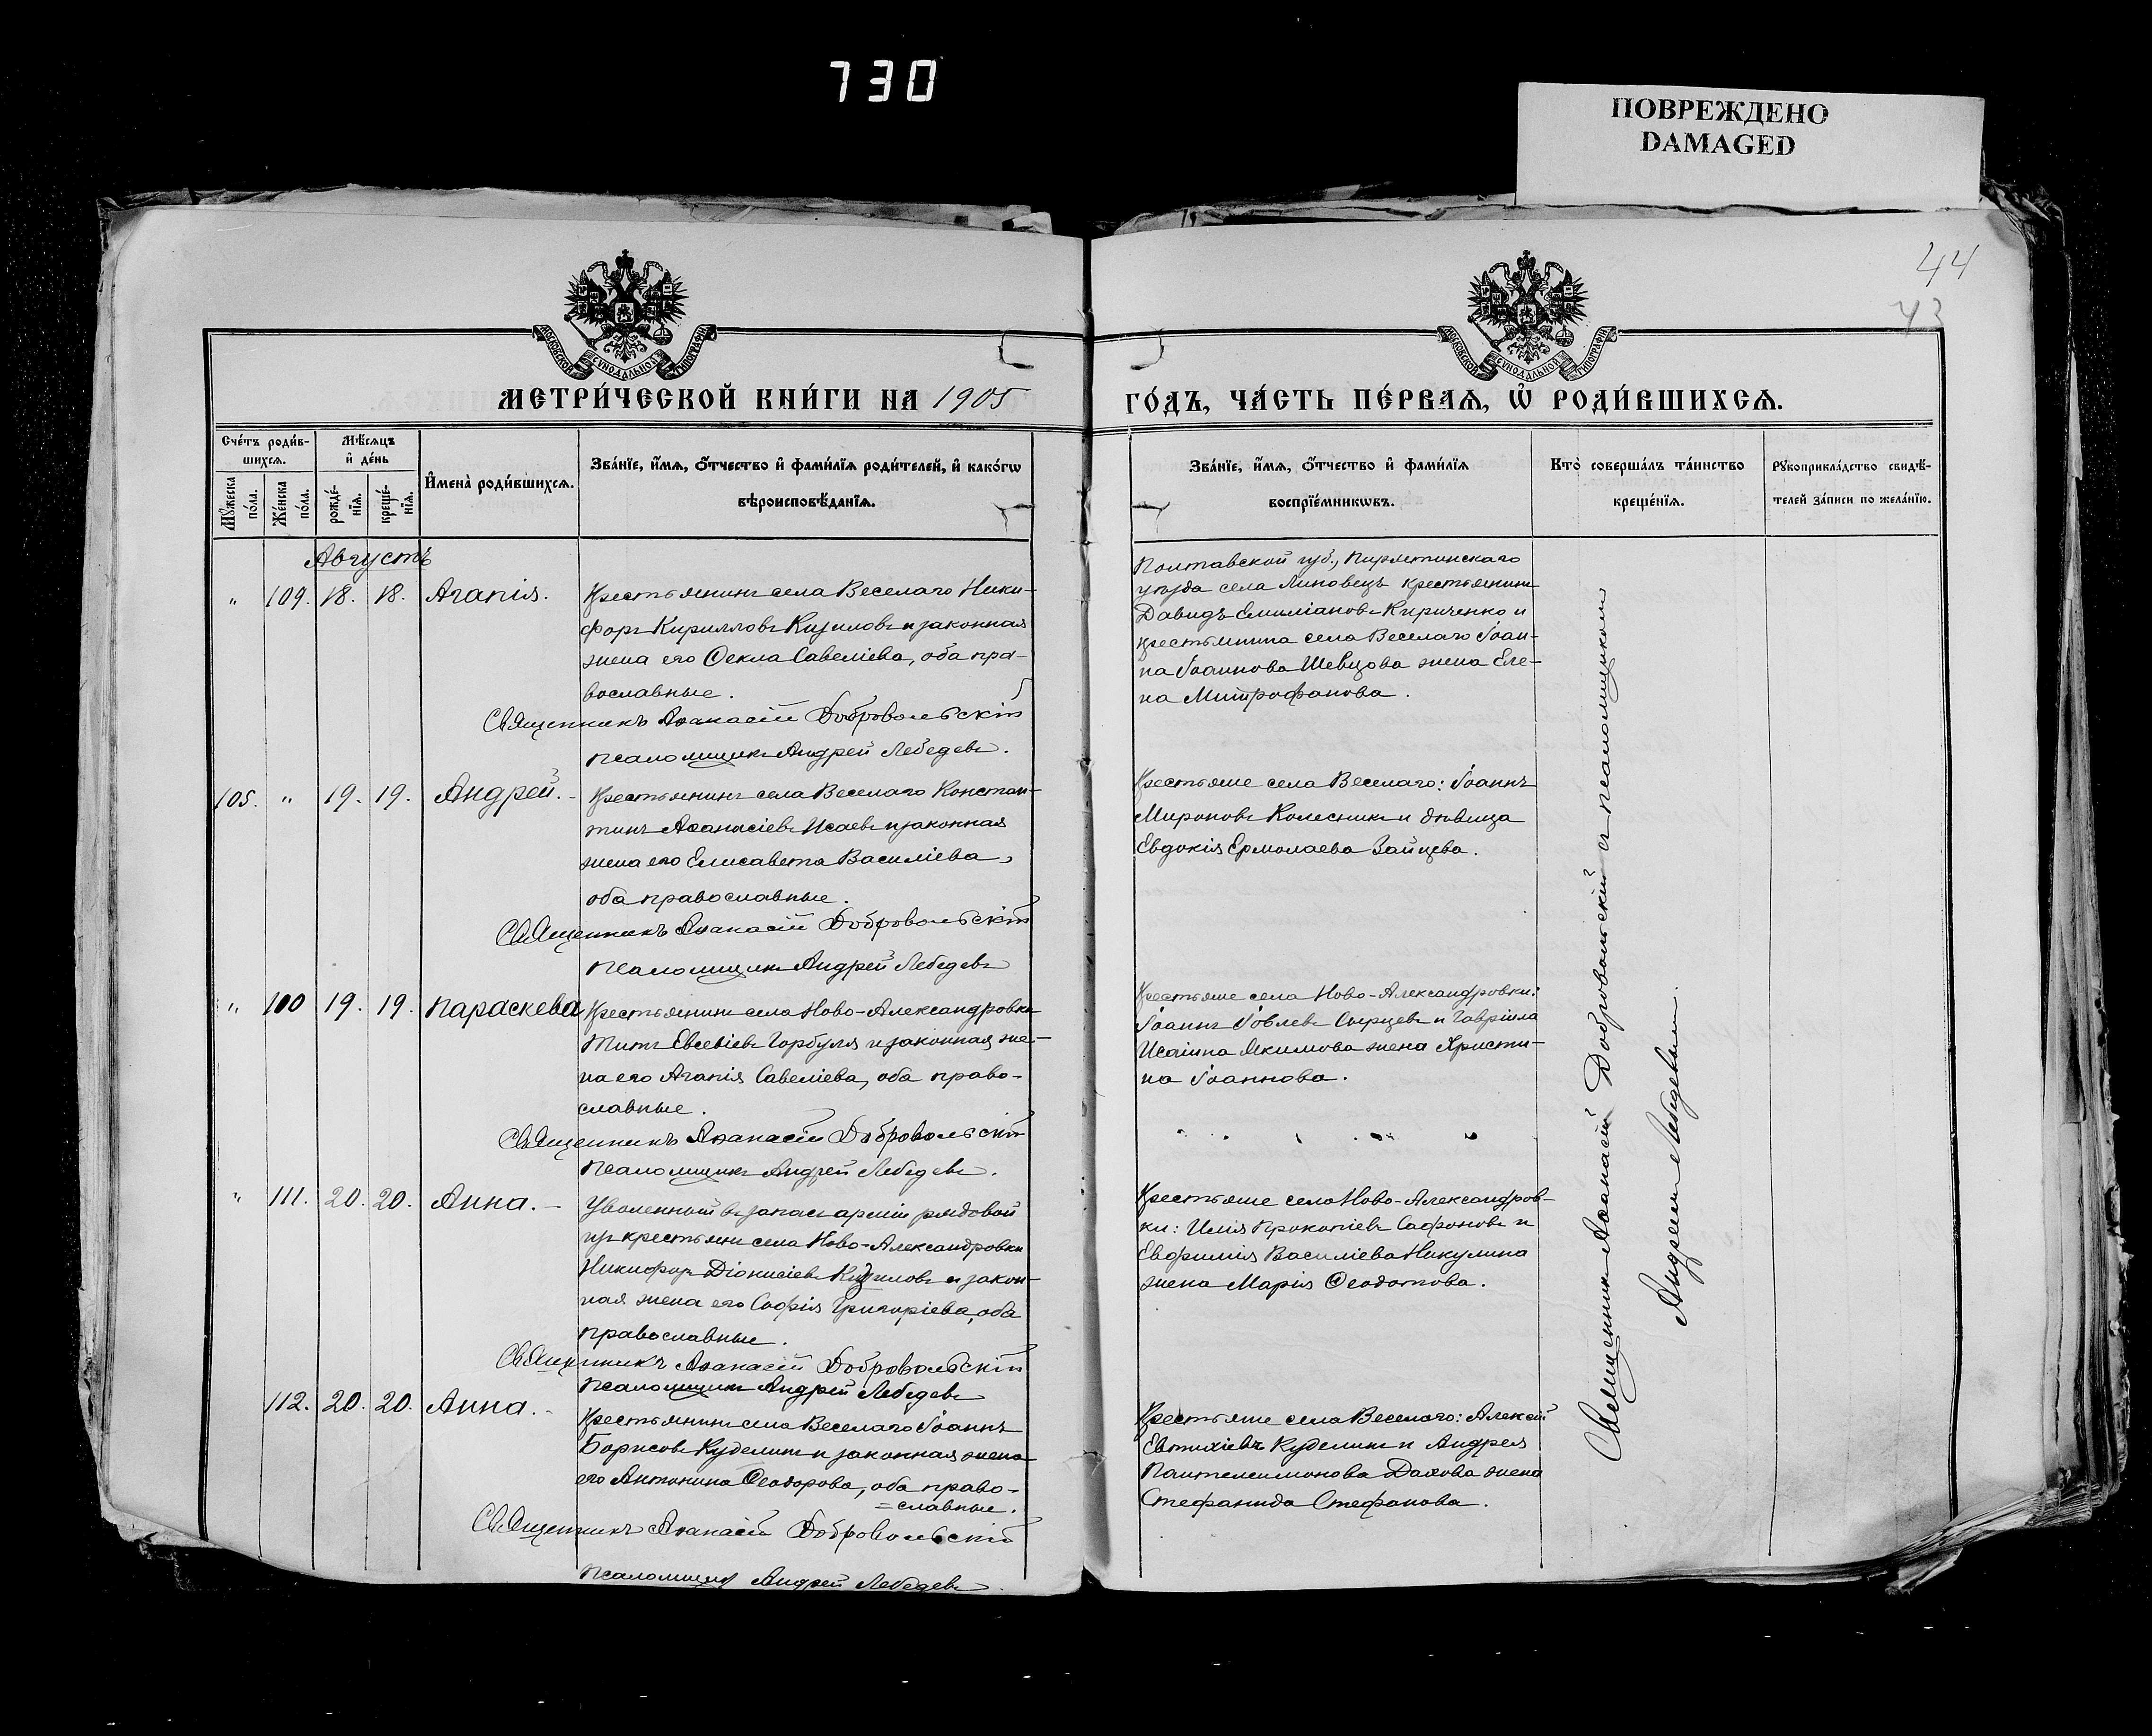 730
ПОВРЕЖДЕНО
DAMAGED
44
43
МОСКОВСКОЙ СѴНОДАЛЬНОЙ ТИПОГРАФІИ
МОСКОВСКОЙ СѴНОДАЛЬНОЙ ТИПОГРАФІИ
МЕТРИ́ЧЕСКОЙ КНИ́ГИ НА 1905
ГО́ДЪ, ЧА́СТЬ ПЕ́РВАѦ, Ѡ҆ РОДИ́ВШИХСѦ.
Сче́тъ роди́в-
шихсѧ.
Мѣ́сѧцъ
и҆ де́нь
И҆мена̀ роди́вшихсѧ.
Зва́нїе, и҆́мѧ, ѻ҆́тчество и҆ фами́лїѧ роди́телей, и҆ како́гѡ
вѣроисповѣ́данїѧ.
Мꙋ́жеска по́ла.
Же́нска по́ла.
рожде́-
нїѧ.
креще́-
нїѧ.
Зва́нїе, и҆́мѧ, ѻ҆́тчество и҆ фами́лїѧ
воспрїе́мникѡвъ.
Кто̀ соверша́лъ та́инство
креще́нїѧ.
Рꙋкоприкла́дство свидѣ́-
телей за́писи по жела́нїю.
Августъ
" 109. 18. 18. Агапія.
Крестьянинъ села Веселаго Ники-
форъ Кирилловъ Кизиловъ и законная
жена его Ѳекла Савеліева, оба пра-
вославные.
Священникъ Аѳанасій Добровольскій
Псаломщикъ Андрей Лебедевъ.
Полтавской губ., Пирятинскаго
уѣзда села Линовецъ крестьянинъ
Давидъ Емиліановъ Кириченко и
крестьянина села Веселаго Іоан-
на Іоаннова Шевцова жена Еле-
на Митрофанова.
105. " 19. 19. Андрей.
Крестьянинъ села Веселаго Констан-
тинъ Аѳанасіевъ Исаевъ и законная
жена его Елисавета Василіева,
оба православные.
Священникъ Аѳанасій Добровольскій
Псаломщикъ Андрей Лебедевъ
Крестьяне села Веселаго: Іоаннъ
Мироновъ Колесникъ и дѣвица
Евдокія Ермолаева Зайцева.
" 110 19. 19. Параскева
Крестьянинъ села Ново-Александровки
Титъ Евсевіевъ Горбуля и законная же-
на его Агапія Савеліева, оба право-
славные.
Священникъ Аѳанасій Добровольскій
Псаломщикъ Андрей Лебедевъ.
Крестьяне села Ново-Александровки:
Іоаннъ Іовлевъ Сырцевъ и Гавріила
Исаіина Якимова жена Христи-
на Іоаннова.
" 111. 20. 20. Анна.
Уволенный въ запасъ арміи рядовой
изъ крестьянъ села Ново-Александровки
Никифоръ Діонисіевъ Кизиловъ и закон-
ная жена его Софія Григоріева, оба
православные.
Священникъ Аѳанасій Добровольскій
Псаломщикъ Андрей Лебедевъ
Крестьяне села Ново-Александров-
ки: Илія Прокопіевъ Сафоновъ и
Евфимія Василіева Никулина
жена Марія Ѳеодотова.
112. 20. 20. Анна.
Крестьянинъ села Веселаго Іоаннъ
Борисовъ Куделинъ и законная жена
его Антонина Ѳеодорова, оба право-
=славные.
Священникъ Аѳанасій Добровольскій
Псаломщикъ Андрей Лебедевъ.
Крестьяне села Веселаго: Алексій
Евтихіевъ Куделинъ и Андрея
Пантелеимонова жена
Стефанида Стефанова.
Священникъ Аѳанасій Добровольскій съ псаломщикомъ
Андреемъ Лебедевымъ.